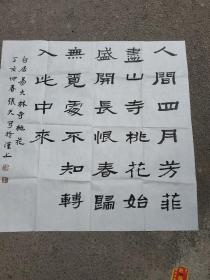 人間四月芳菲
盡山寺桃花始
盛開長恨春歸
無覓處不知轉
入此中來
白居易大林寺桃花
丁亥仲春張天弓於漢上